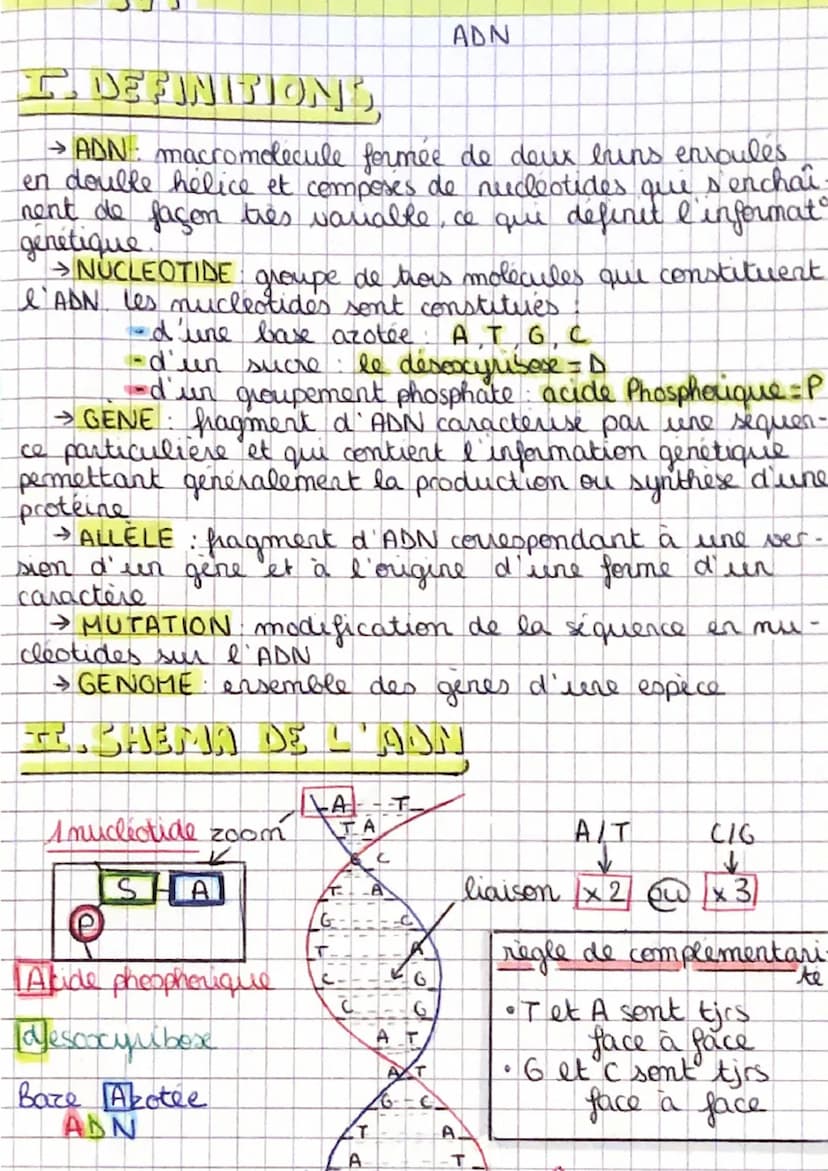 ADN
I. DEFINITIONS
→ ADN : macromolécule formée de deux bruns enroulés
en double hélice et composés de nucléotides qui s'enchaî-
nent de façon très variable, ce qui définit l'informat°
génétique.
→ NUCLEOTIDE : groupe de trois molécules qui constituent
l'ADN. Les nucléotides sont constitués :
- d'une base azotée : A, T, G, C
- d'un sucre : le désoxyribose = D
- d'un groupement phosphate : acide Phosphorique = P
→ GENE : fragment d'ADN caractérisé par une séquen-
ce particulière et qui contient l'information génétique
permettant généralement la production ou synthèse d'une
protéine
→ ALLÈLE : fragment d'ADN correspondant à une ver-
sion d'un gène et à l'origine d'une forme d'un
caractère
→ MUTATION : modification de la séquence en nu-
cléotides sur l'ADN
→ GENOME : ensemble des gènes d'une espèce
II. SHEMA DE L'ADN
1 nucléotide zoom
S A
P
Acide phosphorique
desoxyribose
Base Azotée
ADN
A T
T A
G C
T A
G C
T A
C G
C G
A T
A T
G C
T A
A T
A/T C/G
liaison x2 ou x3
règle de complémentari-
té
• T et A sont tjrs
face à face
• G et C sont tjrs
face à face